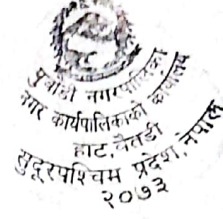 पुर्चौडी नगरपालिका
नगर कार्यपालिकाको कार्यालय
हाट, बैतडी
सुदूरपश्चिम प्रदेश, नेपाल
२०७३